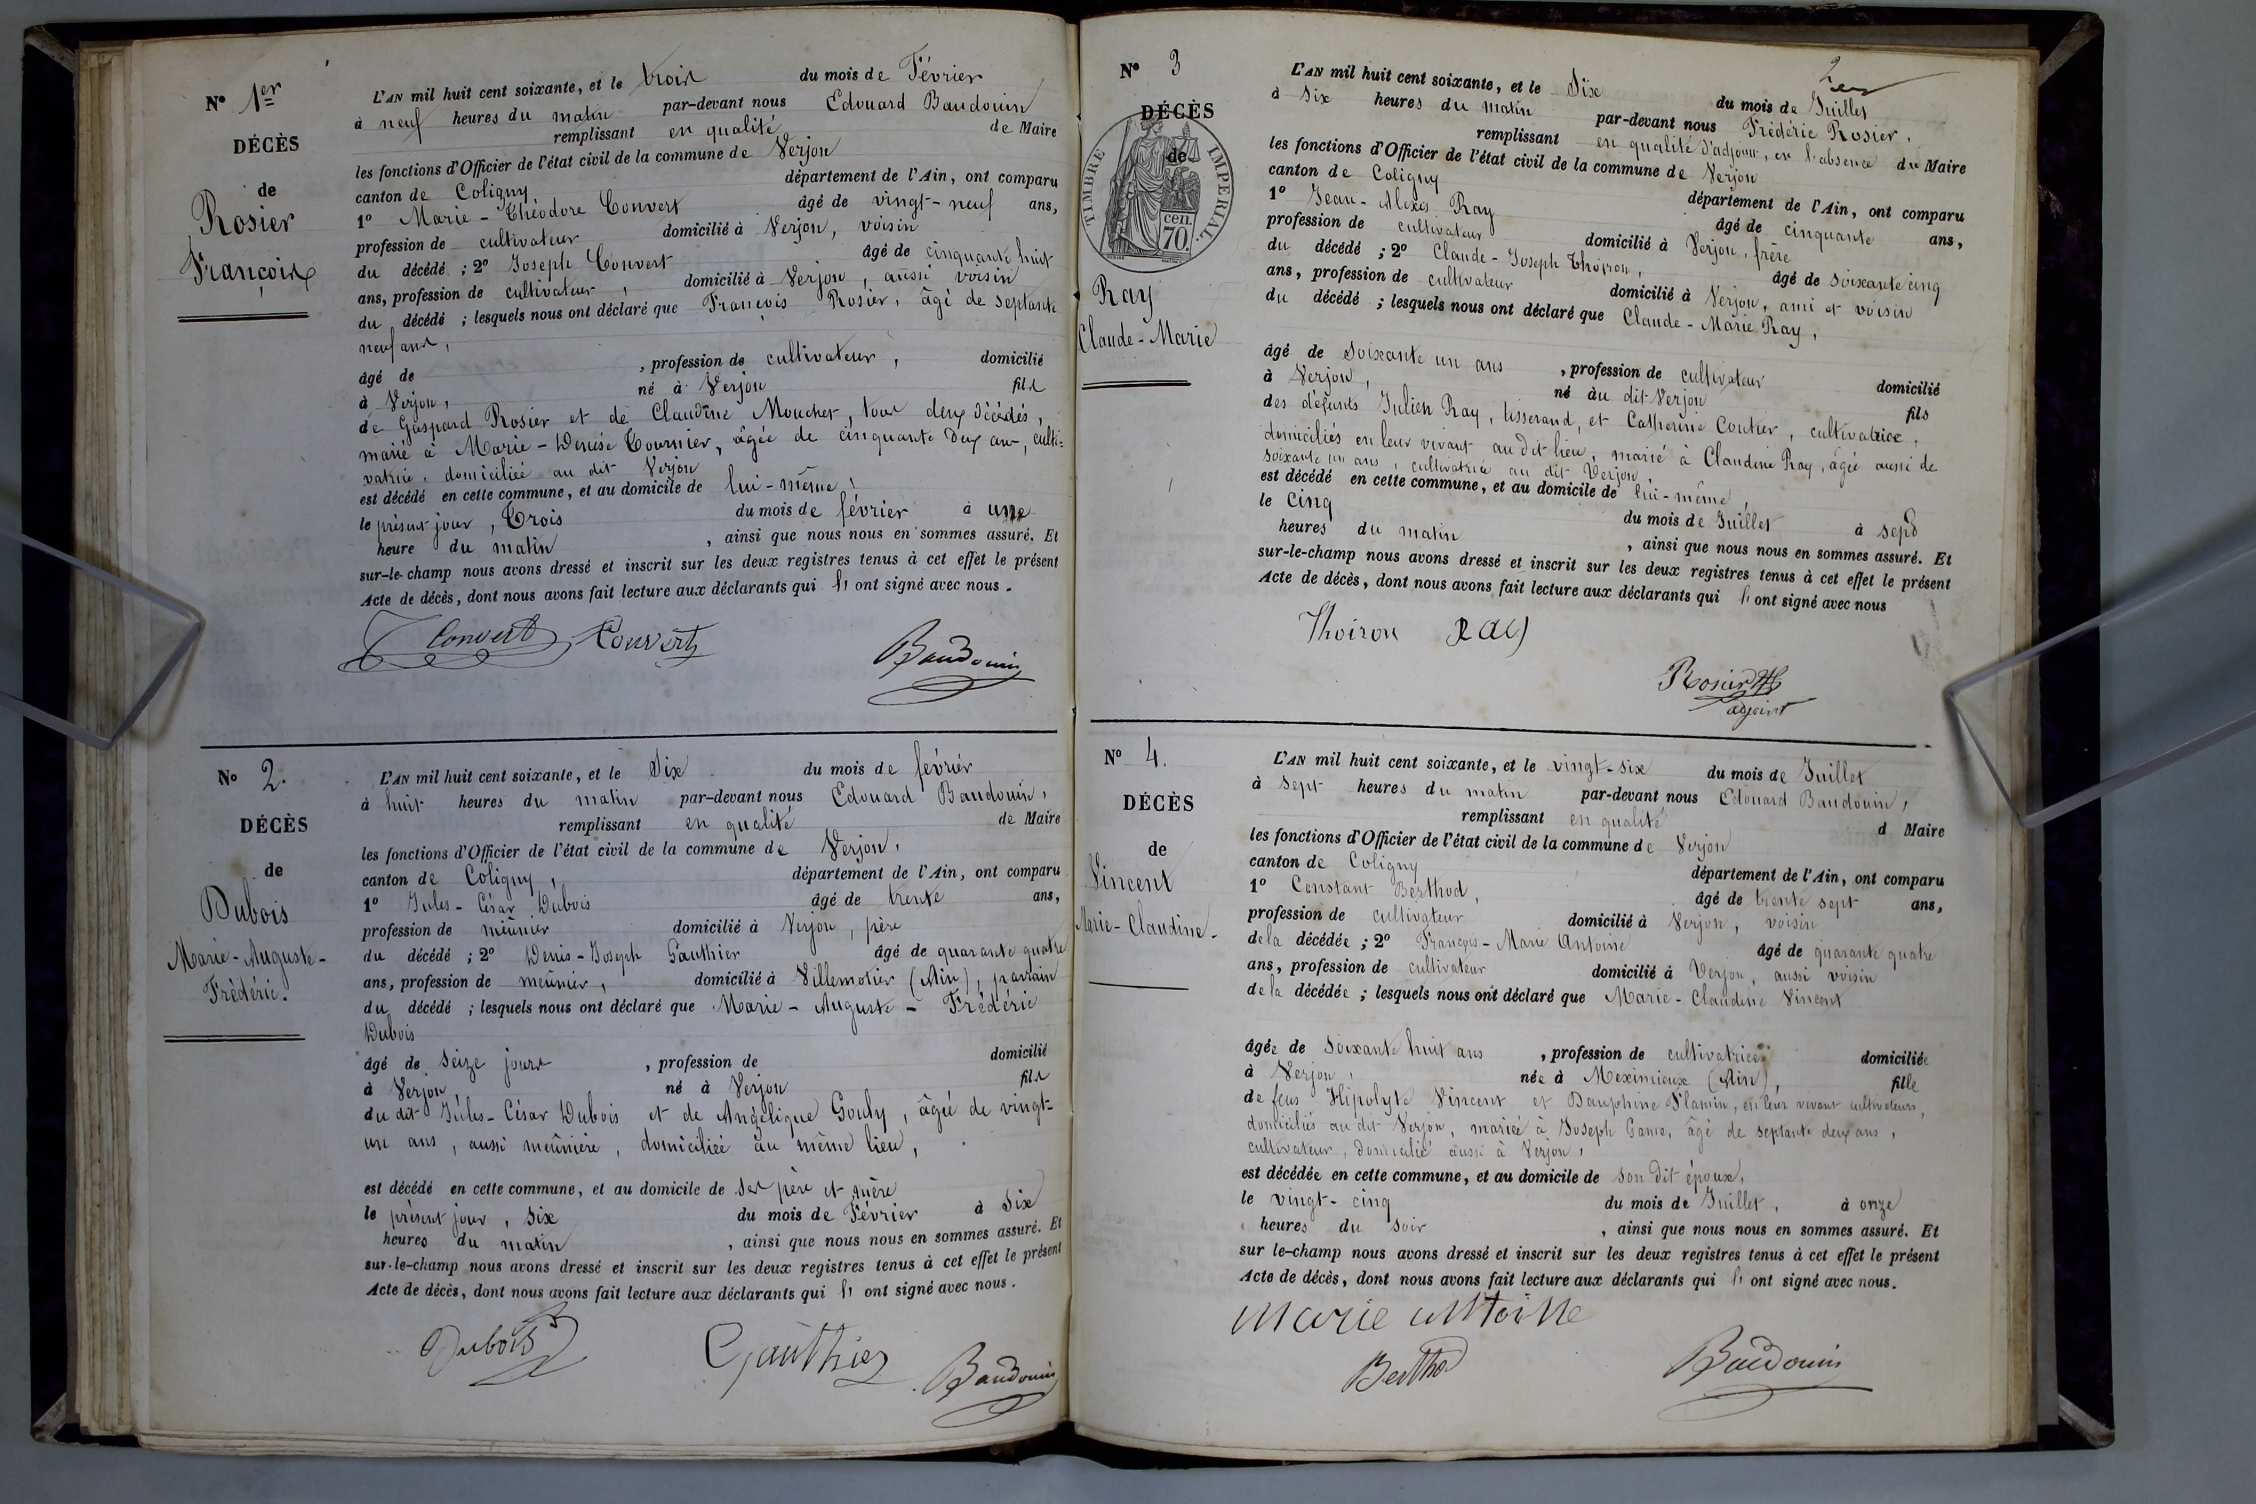 N° 1er
DÉCÈS
de
Rosier
François
L'AN mil huit cent soixante, et le trois du mois de Février
à neuf heures du matin par-devant nous Edouard Baudouin
remplissant en qualité de Maire
les fonctions d'Officier de l'état civil de la commune de Verjon
canton de Coligny département de l'Ain, ont comparu
1° Marie-Théodore Convert âgé de vingt-neuf ans,
profession de cultivateur domicilié à Verjon, voisin
du décédé ; 2° Joseph Convert âgé de cinquante huit
ans, profession de cultivateur, domicilié à Verjon, aussi voisin
du décédé ; lesquels nous ont déclaré que François Rosier, âgé de septante
neuf ans,
âgé de , profession de cultivateur, domicilié
à Verjon, né à Verjon fils
de Gaspard Rosier et de Claudine Mouchet, tous deux décédés,
marié à Marie-Denise Tournier, âgée de cinquante deux ans, culti-
vatrice, domiciliée au dit Verjon
est décédé en cette commune, et au domicile de lui-même,
le présent jour, Trois du mois de février à une
heure du matin , ainsi que nous nous en sommes assuré. Et
sur-le-champ nous avons dressé et inscrit sur les deux registres tenus à cet effet le présent
Acte de décès, dont nous avons fait lecture aux déclarants qui l' ont signé avec nous.
Convert Convert
Baudouin
N° 2.
DÉCÈS
de
Dubois
Marie-Auguste-
Frédéric.
L'AN mil huit cent soixante, et le Six du mois de février
à huit heures du matin par-devant nous Edouard Baudouin,
remplissant en qualité de Maire
les fonctions d'Officier de l'état civil de la commune de Verjon,
canton de Coligny, département de l'Ain, ont comparu
1° Jules-César Dubois âgé de trente ans,
profession de meûnier domicilié à Verjon, père
du décédé ; 2° Denis-Joseph Gauthier âgé de quarante quatre
ans, profession de meûnier, domicilié à Villemotier (Ain), parrain
du décédé ; lesquels nous ont déclaré que Marie-Auguste-Frédéric
Dubois
âgé de Seize jours , profession de domicilié
à Verjon né à Verjon fils
du dit Jules-César Dubois et de Angélique Gouly, âgée de vingt-
un ans, aussi meûnière, domiciliée au même lieu,
est décédé en cette commune, et au domicile de ses père et mère
le présent jour, Six du mois de Février à Six
heures du matin , ainsi que nous nous en sommes assuré. Et
sur-le-champ nous avons dressé et inscrit sur les deux registres tenus à cet effet le présent
Acte de décès, dont nous avons fait lecture aux déclarants qui l' ont signé avec nous.
Dubois Gauthier
Baudouin
N° 3
DÉCÈS
de
TIMBRE IMPERIAL.
cen.
70.
Ray
Claude-Marie
L'AN mil huit cent soixante, et le Six du mois de Juillet
à Six heures du matin par-devant nous Frédéric Rosier,
remplissant en qualité d'adjoint, en l'absence du Maire
les fonctions d'Officier de l'état civil de la commune de Verjon
canton de Coligny département de l'Ain, ont comparu
1° Jean-Alexis Ray âgé de cinquante ans,
profession de cultivateur domicilié à Verjon, frère
du décédé ; 2° Claude-Joseph Thoiron, âgé de soixante cinq
ans, profession de cultivateur domicilié à Verjon, ami et voisin
du décédé ; lesquels nous ont déclaré que Claude-Marie Ray,
âgé de soixante un ans , profession de cultivateur domicilié
à Verjon, né au dit Verjon fils
des défunts Julien Ray, tisserand, et Catherine Coutier, cultivatrice,
domiciliés en leur vivant au dit lieu, marié à Claudine Ray, âgée aussi de
soixante un ans, cultivatrice au dit Verjon,
est décédé en cette commune, et au domicile de lui-même,
le Cinq du mois de Juillet à sept
heures du matin , ainsi que nous nous en sommes assuré. Et
sur-le-champ nous avons dressé et inscrit sur les deux registres tenus à cet effet le présent
Acte de décès, dont nous avons fait lecture aux déclarants qui l' ont signé avec nous
Thoiron Ray
Rosier
adjoint
N° 4.
DÉCÈS
de
Vincent
Marie-Claudine.
L'AN mil huit cent soixante, et le vingt-six du mois de Juillet
à sept heures du matin par-devant nous Edouard Baudouin,
remplissant en qualité d Maire
les fonctions d'Officier de l'état civil de la commune de Verjon
canton de Coligny département de l'Ain, ont comparu
1° Constant Berthod, âgé de trente sept ans,
profession de cultivateur domicilié à Verjon, voisin
de la décédée ; 2° François-Marie Antoine âgé de quarante quatre
ans, profession de cultivateur domicilié à Verjon, aussi voisin
de la décédée ; lesquels nous ont déclaré que Marie-Claudine Vincent
âgée de soixante huit ans , profession de cultivatrice domiciliée
à Verjon, née à Meximieux (Ain), fille
de feus Hipolyte Vincent et Dauphine Flamin, en leur vivant cultivateurs,
domiciliés au dit Verjon, mariée à Joseph Came, âgé de septante deux ans,
cultivateur, domicilié aussi à Verjon,
est décédée en cette commune, et au domicile de son dit époux,
le vingt-cinq du mois de Juillet, à onze
heures du soir , ainsi que nous nous en sommes assuré. Et
sur le-champ nous avons dressé et inscrit sur les deux registres tenus à cet effet le présent
Acte de décès, dont nous avons fait lecture aux déclarants qui l' ont signé avec nous.
Marie Antoine
Berthod
Baudouin